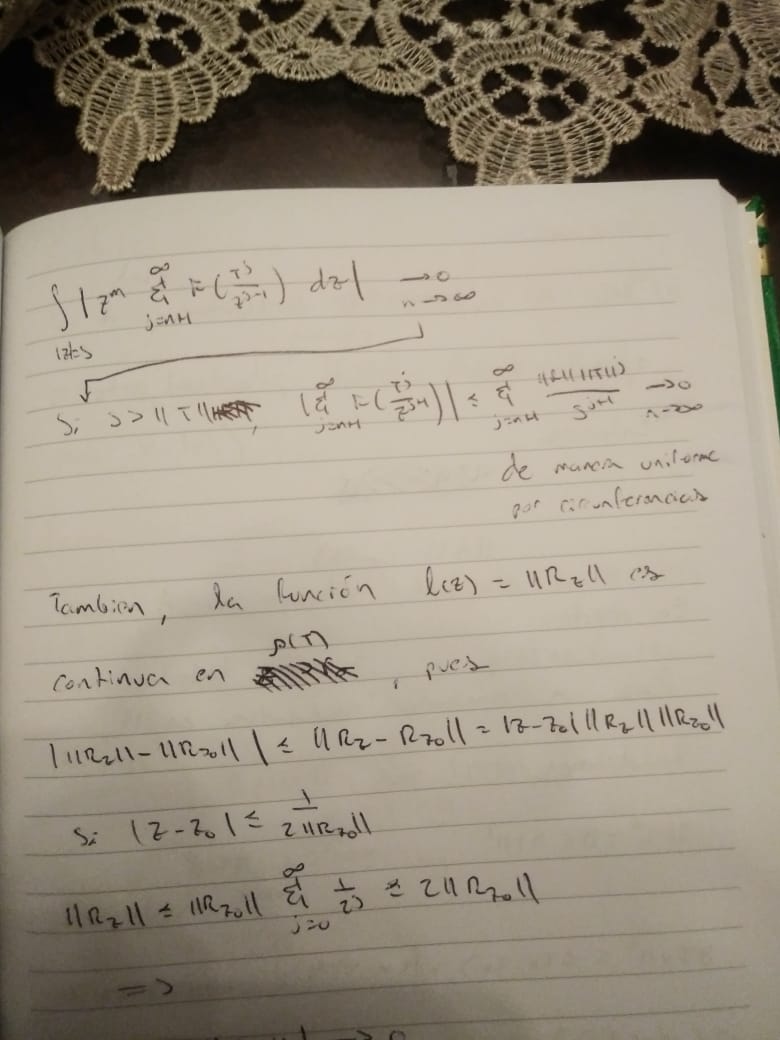 ∫_{|z|=s} | z^m ∑_{j=n+1}^{∞} F(T^j/z^{j+1}) dz | → 0, n→∞
Si s > ||T||, |∑_{j=n+1}^{∞} F(T^j/z^{j+1})| ≤ ∑_{j=n+1}^{∞} ||F|| ||T||^j / s^{j+1} → 0, n→∞
de manera uniforme
por circunferencias
Tambien, la función l(z) = ||R_z|| es
ρ(T)
continua en , pues
| ||R_z|| - ||R_{z_0}|| | ≤ ||R_z - R_{z_0}|| = |z - z_0| ||R_z|| ||R_{z_0}||
Si |z - z_0| ≤ 1/(2||R_{z_0}||)
||R_z|| ≤ ||R_{z_0}|| ∑_{j=0}^{∞} 1/2^j ≤ 2||R_{z_0}||
=>